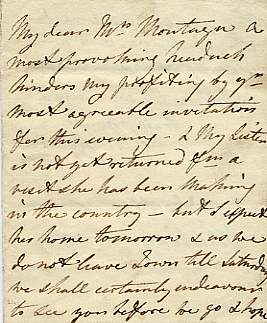 My dear Mrs Montagu a
most provoking headach
hinders my profiting by yr
most agreeable invitation
for this evening - & My Sister
is not yet returned from a
visit she has been making
in the country - but I expect
her home tomorrow & as we
do not leave Town till Saturday
we shall certainly endeavour
to see you before we go & hope